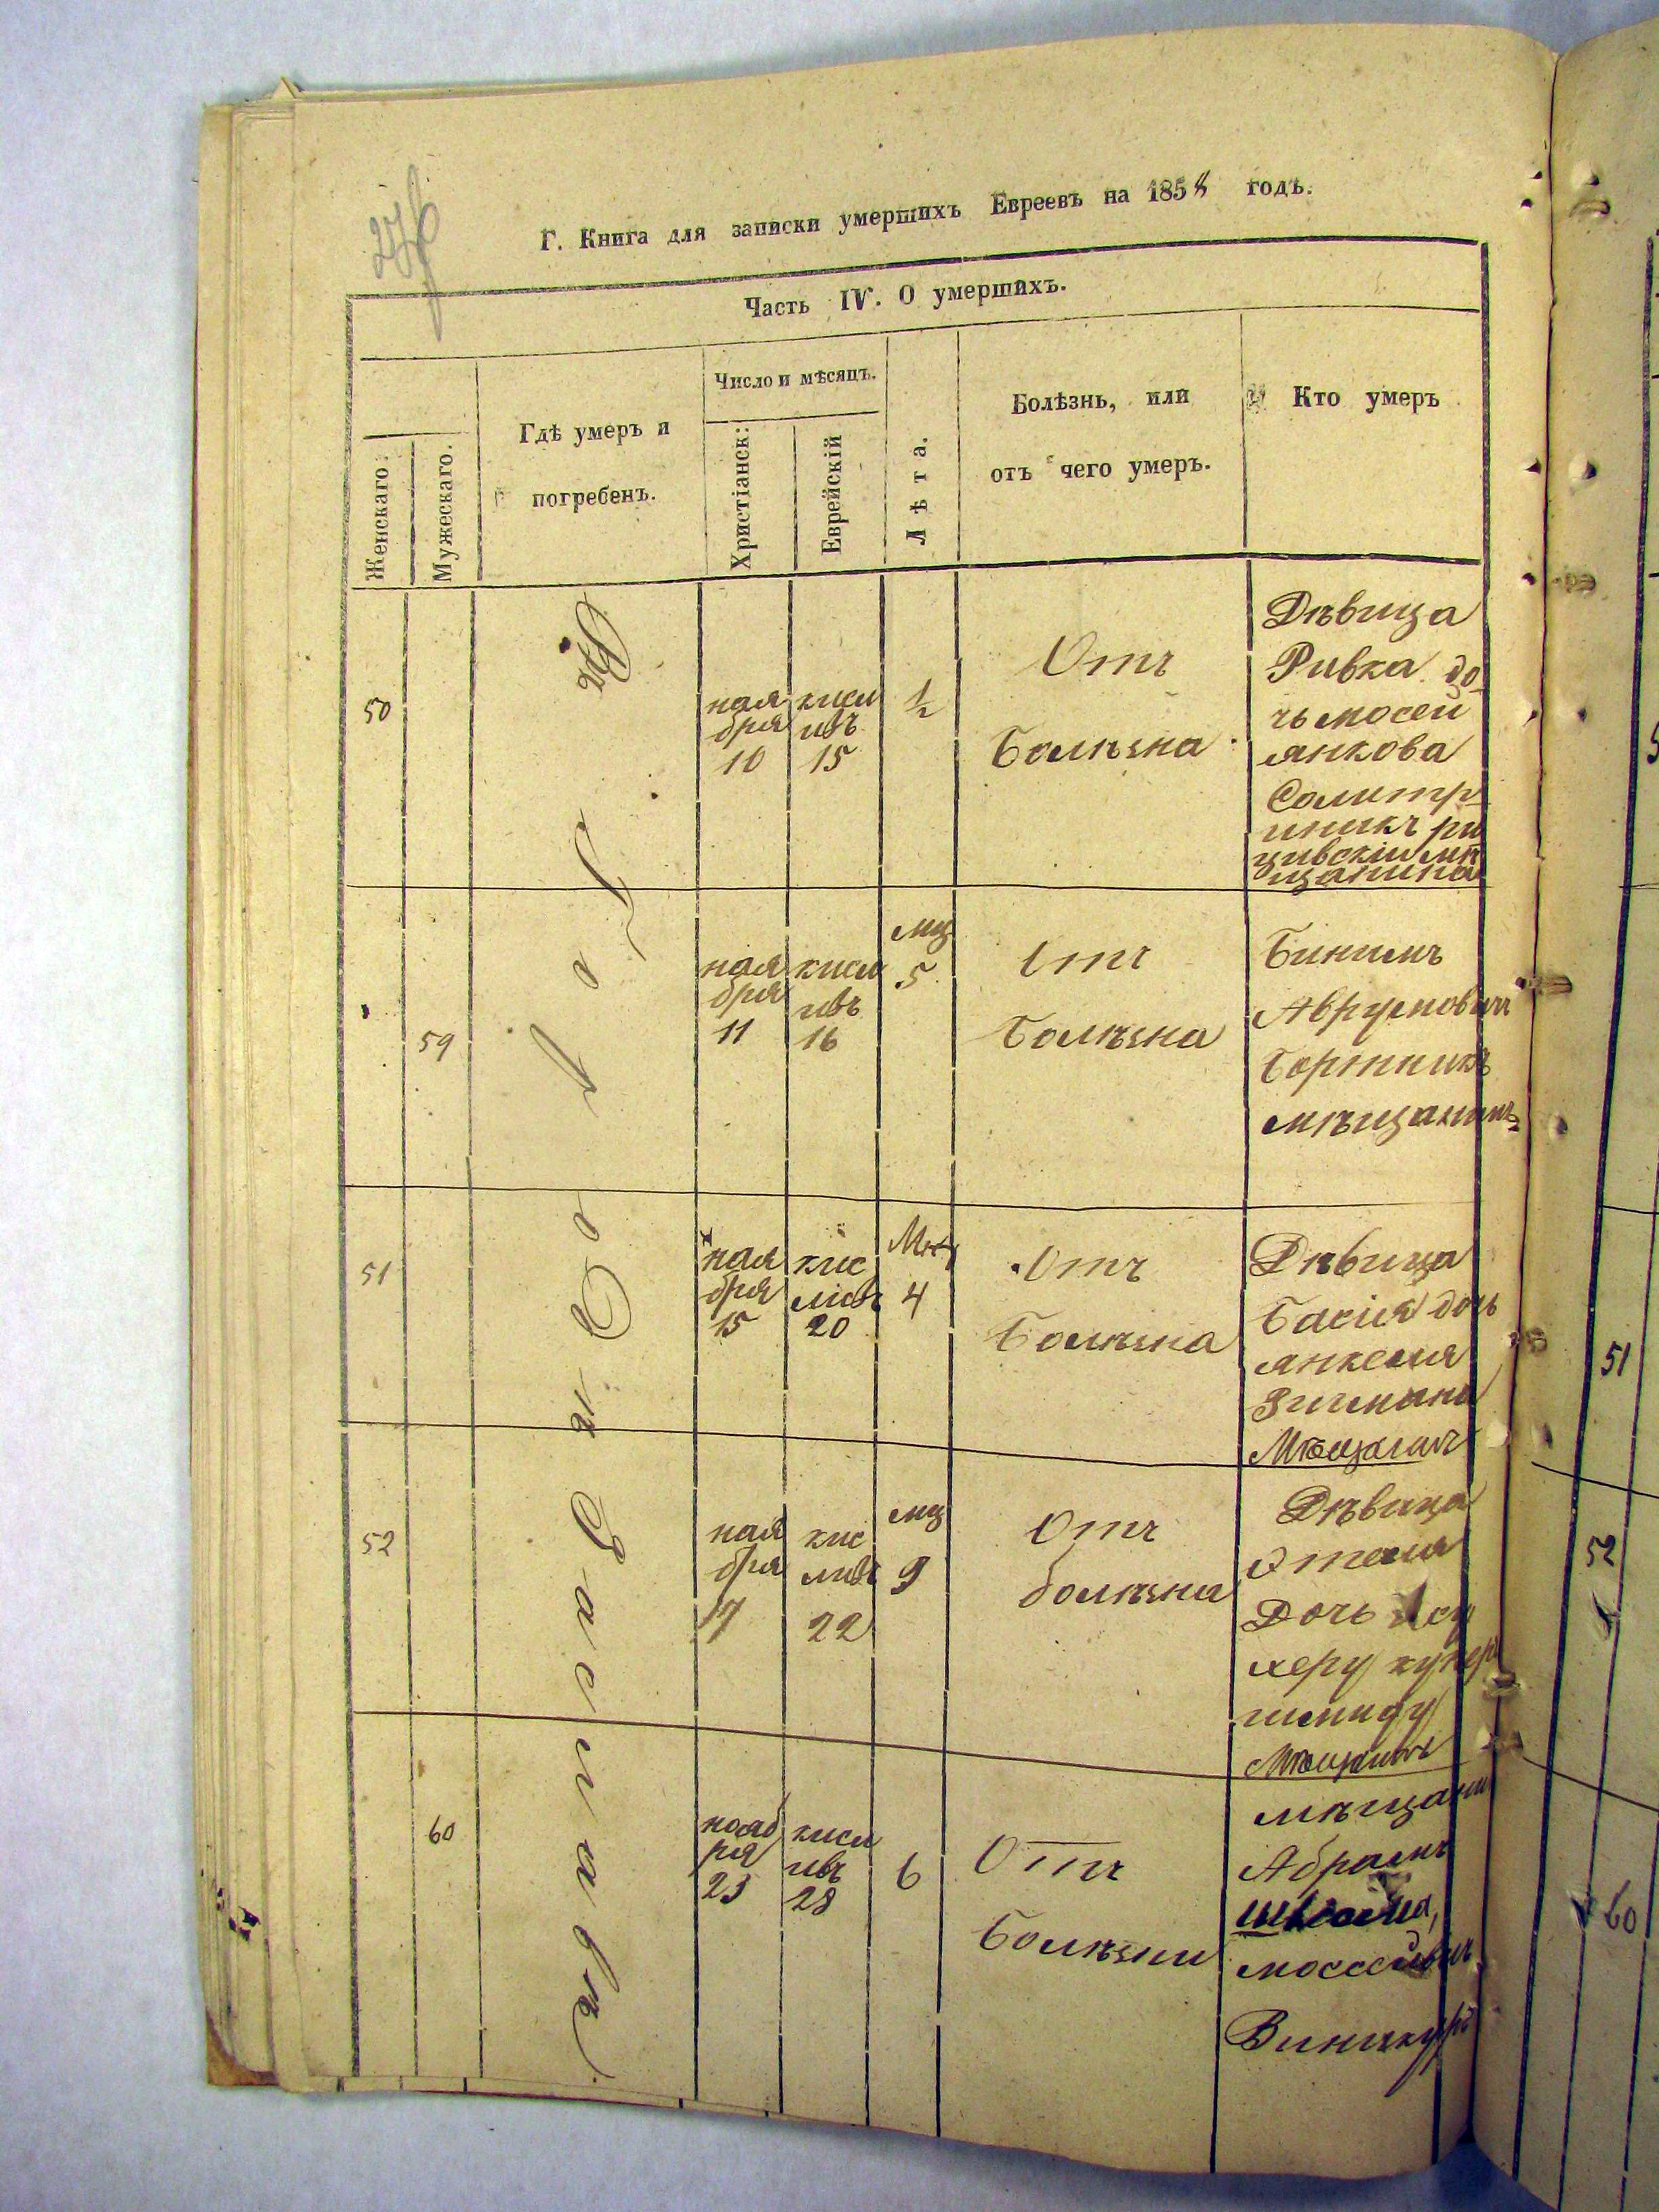 276
Г. Книга для записки умершихъ Евреевъ на 1858 годъ.
Часть IV. О умершихъ.
Женскаго.
Мужескаго.
Гдѣ умеръ и
погребенъ.
Число и мѣсяцъ.
Христіанск:
Еврейскій
Лѣта.
Болѣзнь, или
отъ чего умеръ.
Кто умеръ
Въ Городѣ Заславѣ
50
ноя
бря
10
кисл
ивъ
15
1/2
Отъ
Болѣзна
Дѣвица
Ривка до
чь мосей
янкова
Солитр
иникъ
мѣ
щанина
59
ноя
бря
11
кисл
ивъ
16
мц
5
Отъ
Болѣзна
Бинимъ
Аврумовичъ
Бортникъ
мѣщанинъ
51
ноя
бря
15
кис
ливъ
20
4
Отъ
Болѣзна
Дѣвица
Басія дочь
янкеля
Мѣщанин
52
ноя
бря
17
кис
ливъ
22
мц
9
Отъ
болѣзна
Дѣвица
Этеля
Дочь
херу купер
шмиду
60
нояб
ря
23
кисл
ивъ
28
6
Отъ
Болѣзни
мѣщанин
Абрамъ
Виникуръ
51
52
60